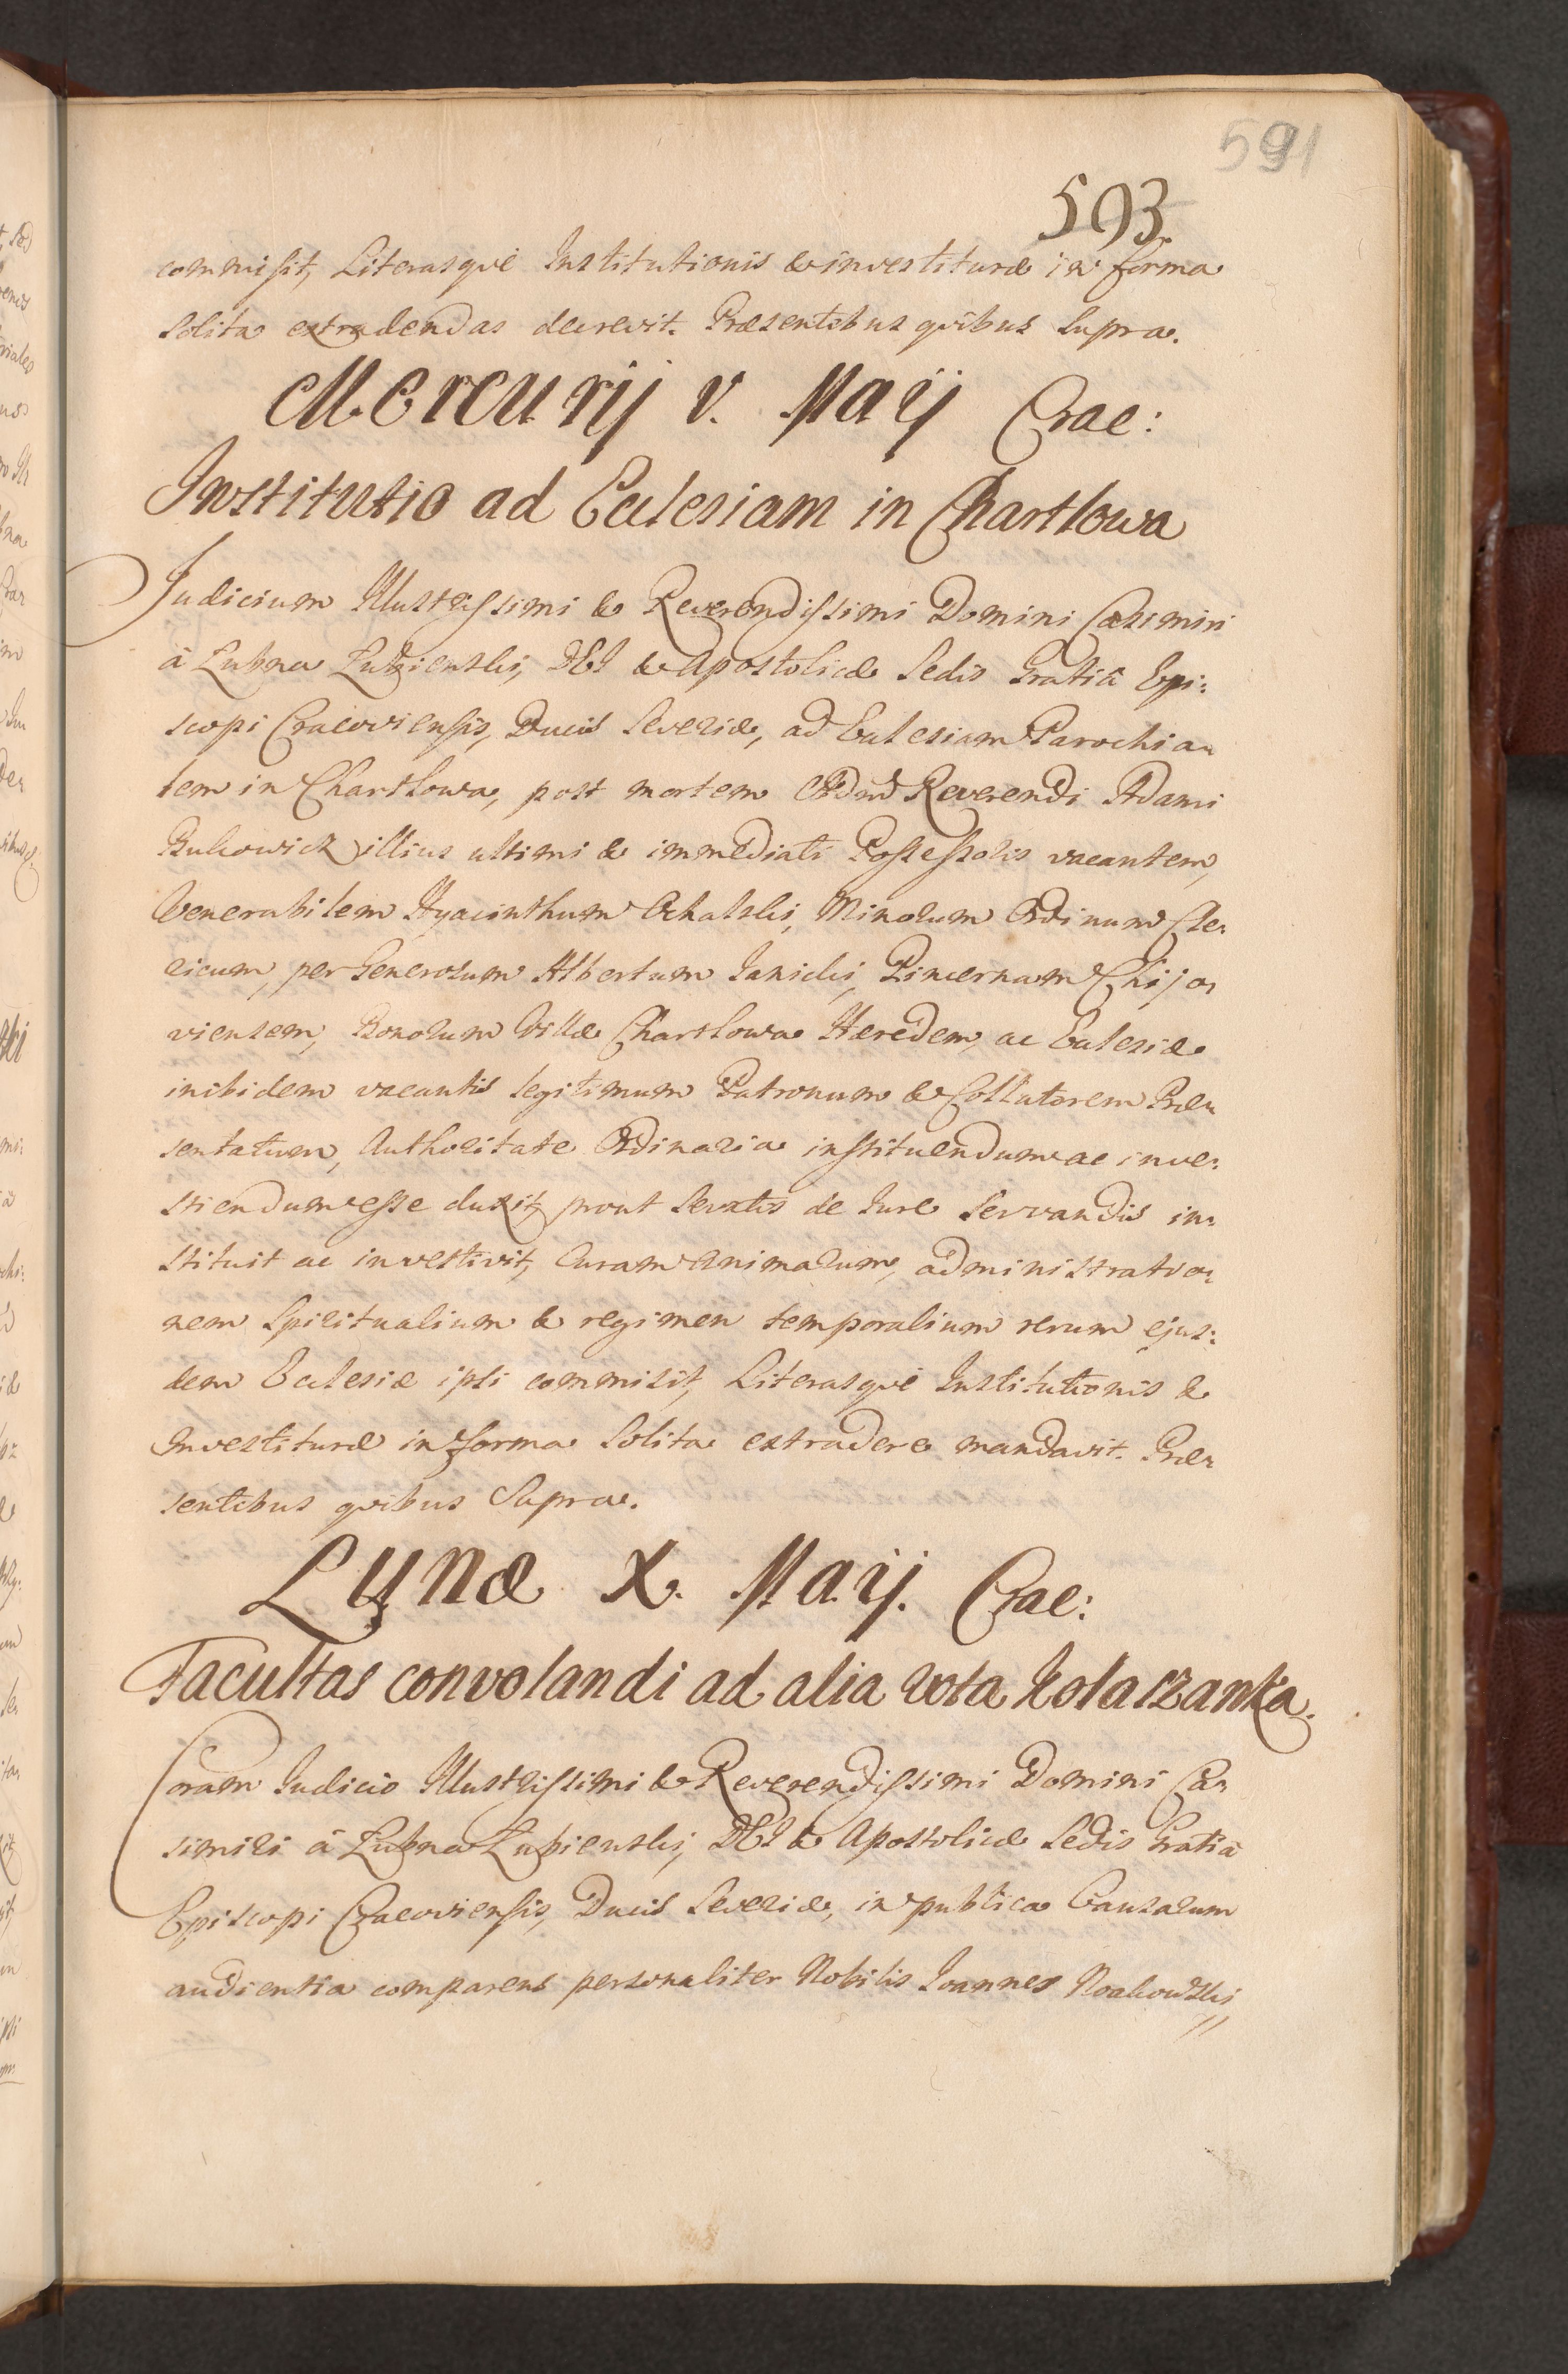 591
593
commisit, Literasqve Institutionis & investituræ in forma
solita extradendas decrevit. Præsentibus qvibus supra.
Mercurij v. Maij Crac:
Institutio ad Ecclesiam in Charsłowa
Judicium Illustrissimi & Reverendissimi Domini Casimiri
â Łubna Łubienski, DEI & Apostolicæ Sedis Gratiâ Epi:
scopi Cracoviensis, Ducis Severiæ, ad Ecclesiam Parochia-
lem in Charsłowa, post mortem Admd Reverendi Adami
Bukowicz illius ultimi & immediati Possessoris vacantem,
Venerabilem Hyacinthum Ochalski, Minorum Ordinum Cle-
ricum, per Generosum Albertum Janicki, Pincernam Chijo-
viensem, Bonorum Villæ Charsłowa Hæredem, ac Ecclesiæ
inibidem vacantis legitimum Patronum & Collatorem Præ-
sentatum, Authoritate Ordinaria instituendum ac inve:
stiendum esse duxit, prout servatis de Jure servandis in-
stituit ac investivit, Curam animarum, administratio-
nem Spiritualium & regimen temporalium rerum ejus:
dem Ecclesiæ ipsi commisit, Literasqve Institutionis &
Investituræ in forma solita extradere mandavit. Præ-
sentibus qvibus Supra.
Lunæ X. Maij. Crac:
Facultas convolandi ad alia vota Kołaczanka.
Coram Judicio Illustrissimi & Reverendissimi Domini Ca-
simiri â Łubna Łubienski, DEI & Apostolicæ Sedis Gratiâ
Episcopi Cracoviensis, Ducis Severiæ, in publica Causarum
audientia comparens personaliter Nobilis Joannes Noakowski,